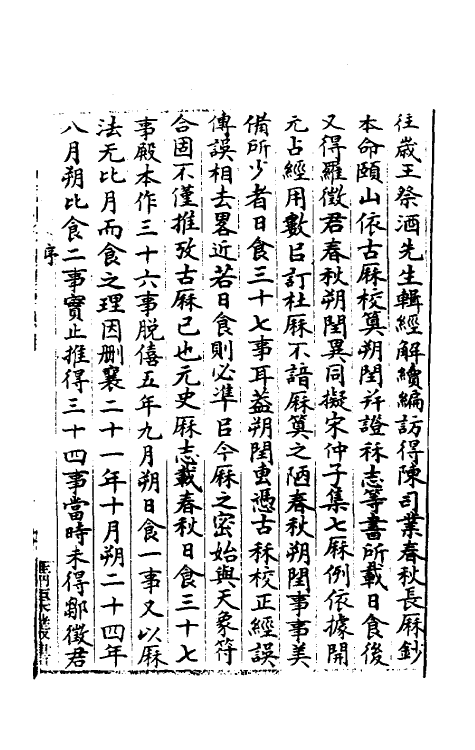 往歲王祭酒先生輯經解續編訪得陳司業春秋長厤鈔
本命頤山依古厤校算朔閏并證秝志等書所載日食後
又得羅徵君春秋朔閏異同擬宋仲子集七厤例依據開
元占經用數㠯訂杜厤不諳厤算之陋春秋朔閏事事美
備所少者日食三十七事耳葢朔閏專憑古秝校正經誤
傳誤相去畧近若日食則必準㠯今厤之密始與天象符
合固不僅推攷古厤已也元史厤志載春秋日食三十七
事殿本作三十六事脫僖五年九月朔日食一事又以厤
法无比月而食之理因删襄二十一年十月朔二十四年
八月朔比食二事實止推得三十四事當時未得鄒徵君
序